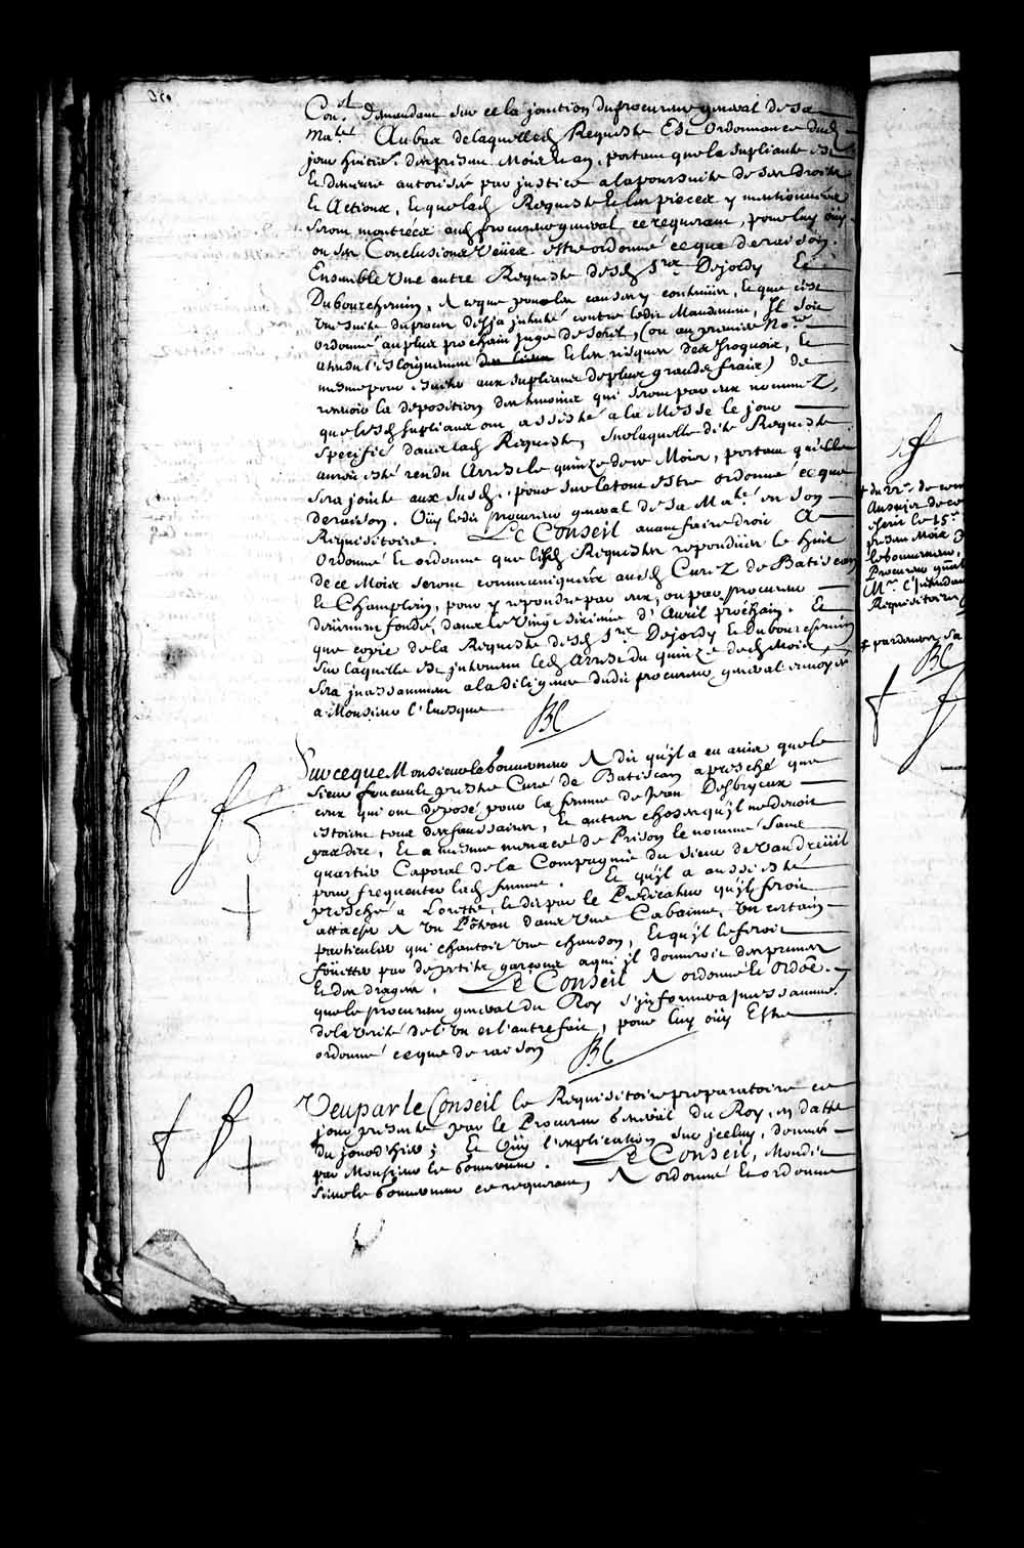 Con.el demandant sur ce la jonction du procureur general de Sa
Ma.té Au bas de laquelle d. Requeste Est Ordonnance dud.
jour huitie.e du present Mois
portant que la supliante est
Et demeure autorisée par justice a la poursuite de ses droits
Et Actions, Et que lad. Requeste Et les pieces y mentionnées
seront montrées aud. procureur general ce requerant, pour luy ouy
ou ses Conclusions Veües estre ordonné ce que de raison.
Ensemble Une autre Requeste desd. S.rs Dejordy Et
Dubourchemin, A ce que pour les causes y contenües, Et que c'est
Une suite du procez desja intenté contre ledit Mandement, Il soit
ordonné au plus prochain juge de Sorel, (ou au premier No.re
attendu l'esloignement Et les risques des Iroquois, Et
mesme pour esviter aux supliants de plus grands fraix) de
recevoir la deposition des tesmoins qui seront par eux nommez,
que lesd. supliants ont assisté a la Messe le jour
specifié dans lad. Requeste, sur laquelle dite Requeste
auroit esté rendu Arrest le quinze de ce Mois, portant qu'elle
sera jointe aux susd., pour sur le tout estre ordonné ce que
de raison. Oüy ledit procureur general de Sa Ma.té en son
Requisitoire. Le Conseil avant faire droit A
Ordonné Et ordonne que lesd. Requestes repondües le huit
de ce Mois seront communiquées ausd. Curez de Batiscan
Et Champlain, pour y repondre par eux, ou par procureur
deüement fondé, dans le Vingt sixieme d'Avril prochain. Et
que copie de la Requeste desd. S.rs Dejordy Et Dubourchemin
sur laquelle est intervenu led. Arrest du quinze dud. Mois,
sera incessamment a la diligence dudit procureur general envoyée
a Monsieur l'Evesque
Sur ce que Monsieur le Gouverneur A dit qu'il a eu avis que le
sieur foucault prestre Curé de Batiscan a presché que
ceux qui ont deposé pour la femme de Jean Desbryeux
estoient tous des faussaires, Et autres choses qu'il ne devoit
pas dire, Et a mesme menacé de Prison le nommé Sans
quartier Caporal de la Compagnie du Sieur de Vaudreüil
pour frequenter lad. femme. Et qu'il a aussi esté
presché a Lorette, Et dit par le Predicateur qu'il feroit
attacher A Un Pôteau dans Une Cabanne, Un certain
particulier qui chantoit Une chanson, Et qu'il le feroit
foüetter par de petits garçons a qui il donneroit des prunes
Et des dragées. Le Conseil A ordonné Et Ordoē.
que le procureur general du Roy s'informera incessamme.t
de la Verité de l'Un et l'autre fait, pour luy oüy Estre
ordonné ce que de raison
Veu par le Conseil le Requisitoire preparatoire ce
jour presenté par le Procureur General du Roy, en datte
du jour d'hier; Et Oüy l'explication sur iceluy, donnée
par Monsieur le Gouverneur. Le Conseil, Mondit
Sieur le Gouverneur ce requerant, A ordonné Et ordonne
Procureur
Requisitoire